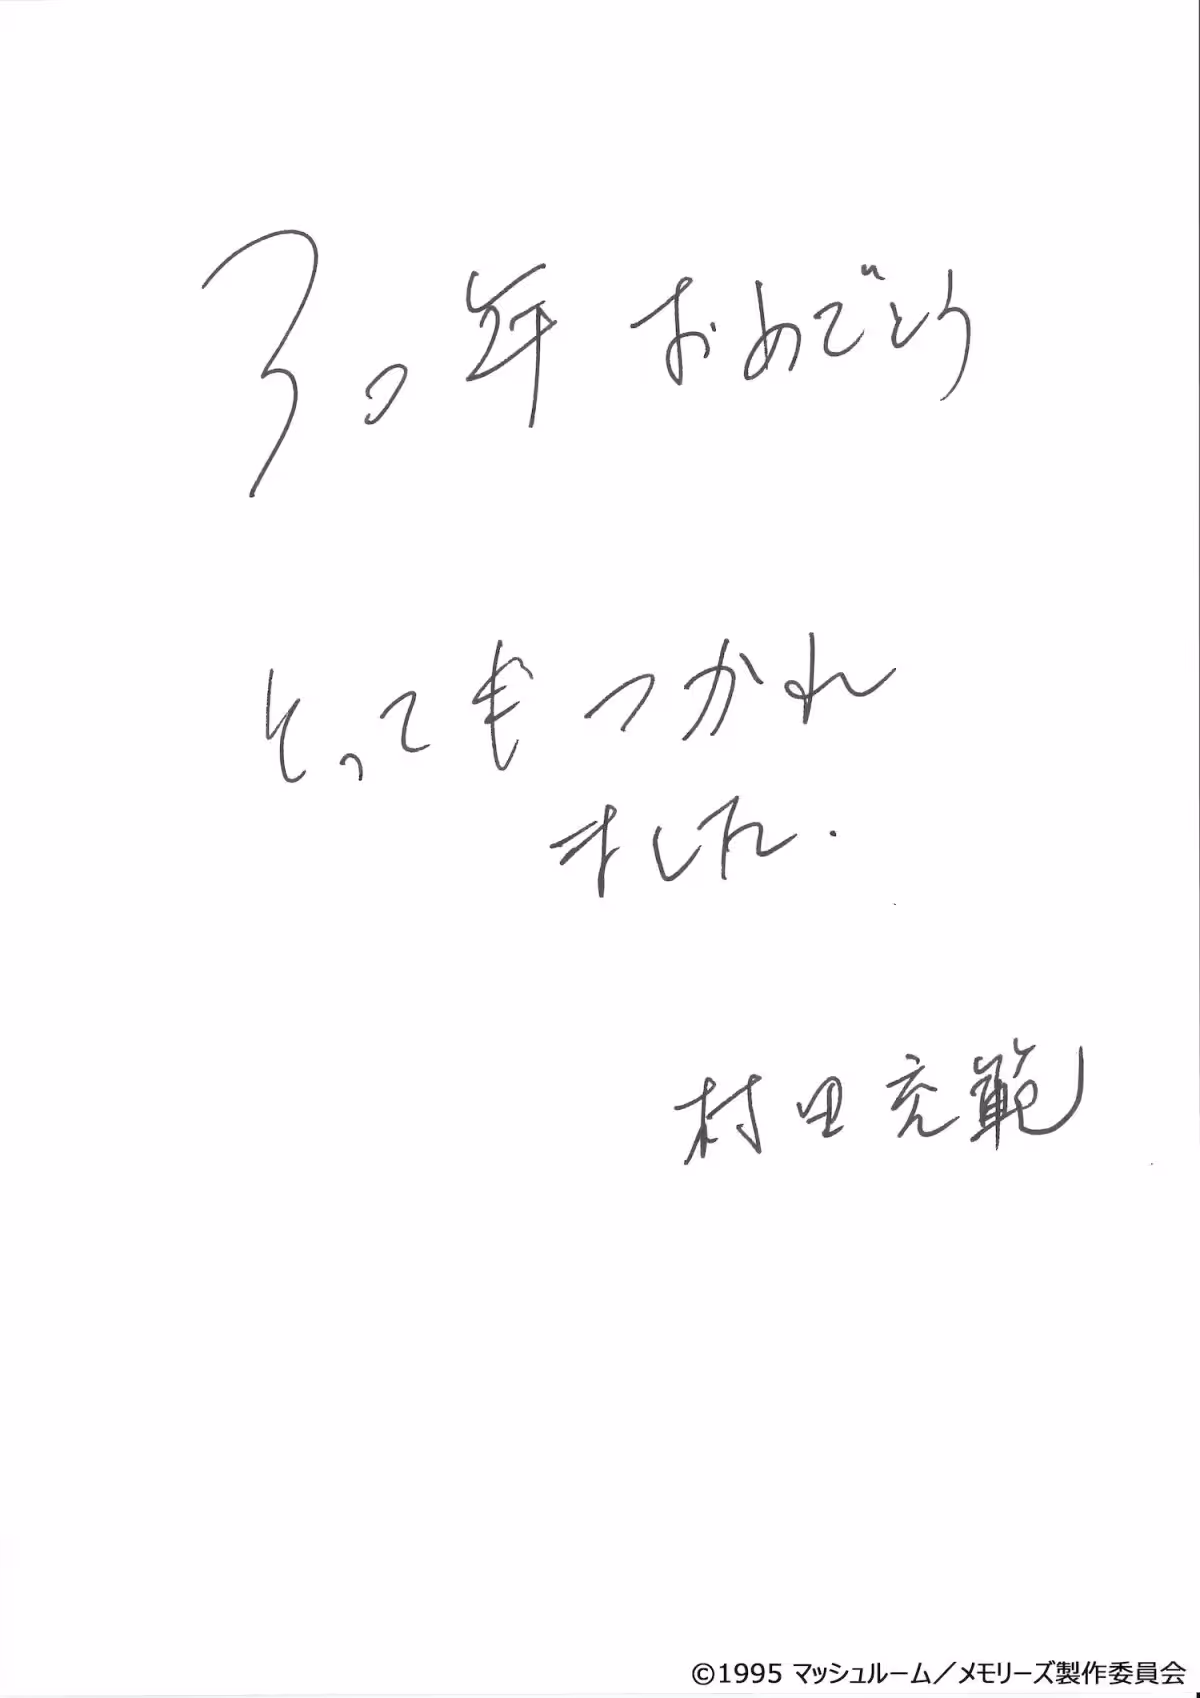 30年 おめでとう
とってもつかれ
ました.
村田充範
©1995 マッシュルーム／メモリーズ製作委員会